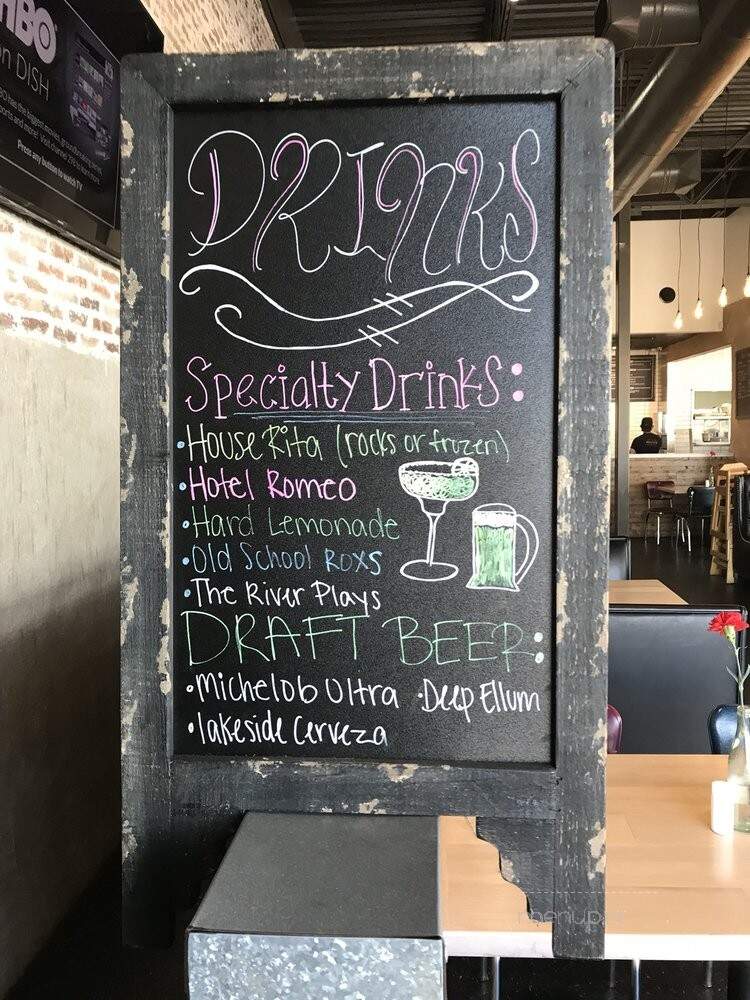 HBO
on DISH
Press any button to watch TV
DRINKS
Specialty Drinks:
• House Rita (rocks or frozen)
• Hotel Romeo
• Hard Lemonade
• Old School Roxs
• The River Plays
DRAFT BEER:
• Michelob Ultra • Deep Ellum
• lakeside Cerveza
menupix